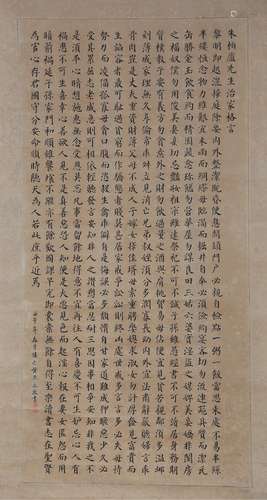 朱柏廬先生治家格言
黎明即起灑掃庭除要內外整潔既昏便息關鎖門戶必親自檢點一粥一飯當思來處不易半絲
半縷恆念物力維艱宜未雨而綢繆毋臨渴而掘井自奉必須儉約宴客切勿流連器具質而潔瓦
缶勝金玉飲食約而精園蔬愈珍饈勿營華屋勿謀良田三姑六婆實淫盜之媒婢美妾嬌非閨房
之福奴僕勿用俊美妻妾切忌艷妝祖宗雖遠祭祀不可不誠子孫雖愚經書不可不讀居身務期
質樸教子要有義方勿貪意外之財勿飲過量之酒與肩挑貿易毋佔便宜見貧苦親鄰須多溫卹
刻薄成家理無久享倫常乖舛立見消亡兄弟叔姪須分多潤寡長幼內外宜法肅辭嚴聽婦言乖
骨肉豈是丈夫重資財薄父母不成人子嫁女擇佳婿毋索重聘娶媳求淑女勿計厚奩見富貴而
生諂容者最可恥遇貧窮而作驕態者賤莫甚居家戒爭訟訟則終凶處世戒多言言多必失毋恃
勢力而凌逼孤寡毋貪口腹而恣殺生禽乖僻自是悔誤必多頹惰自甘家道難成狎暱惡少久必
受其累屈志老成急則可相依輕聽發言安知非人之譖愬當忍耐三思因事相爭安知非我之不
是須平心暗想施惠無念受恩莫忘凡事當留餘地得意不宜再往人有喜慶不可生妒忌心人有
禍患不可生喜幸心善欲人見不是真善惡恐人知便是大惡見色而起淫心報在妻女匿怨而用
暗箭禍延子孫家門和順雖饔飧不繼亦有餘歡國課早完即囊橐無餘自得至樂讀書志在聖賢
為官心存君國守分安命順時聽天為人若此庶乎近焉